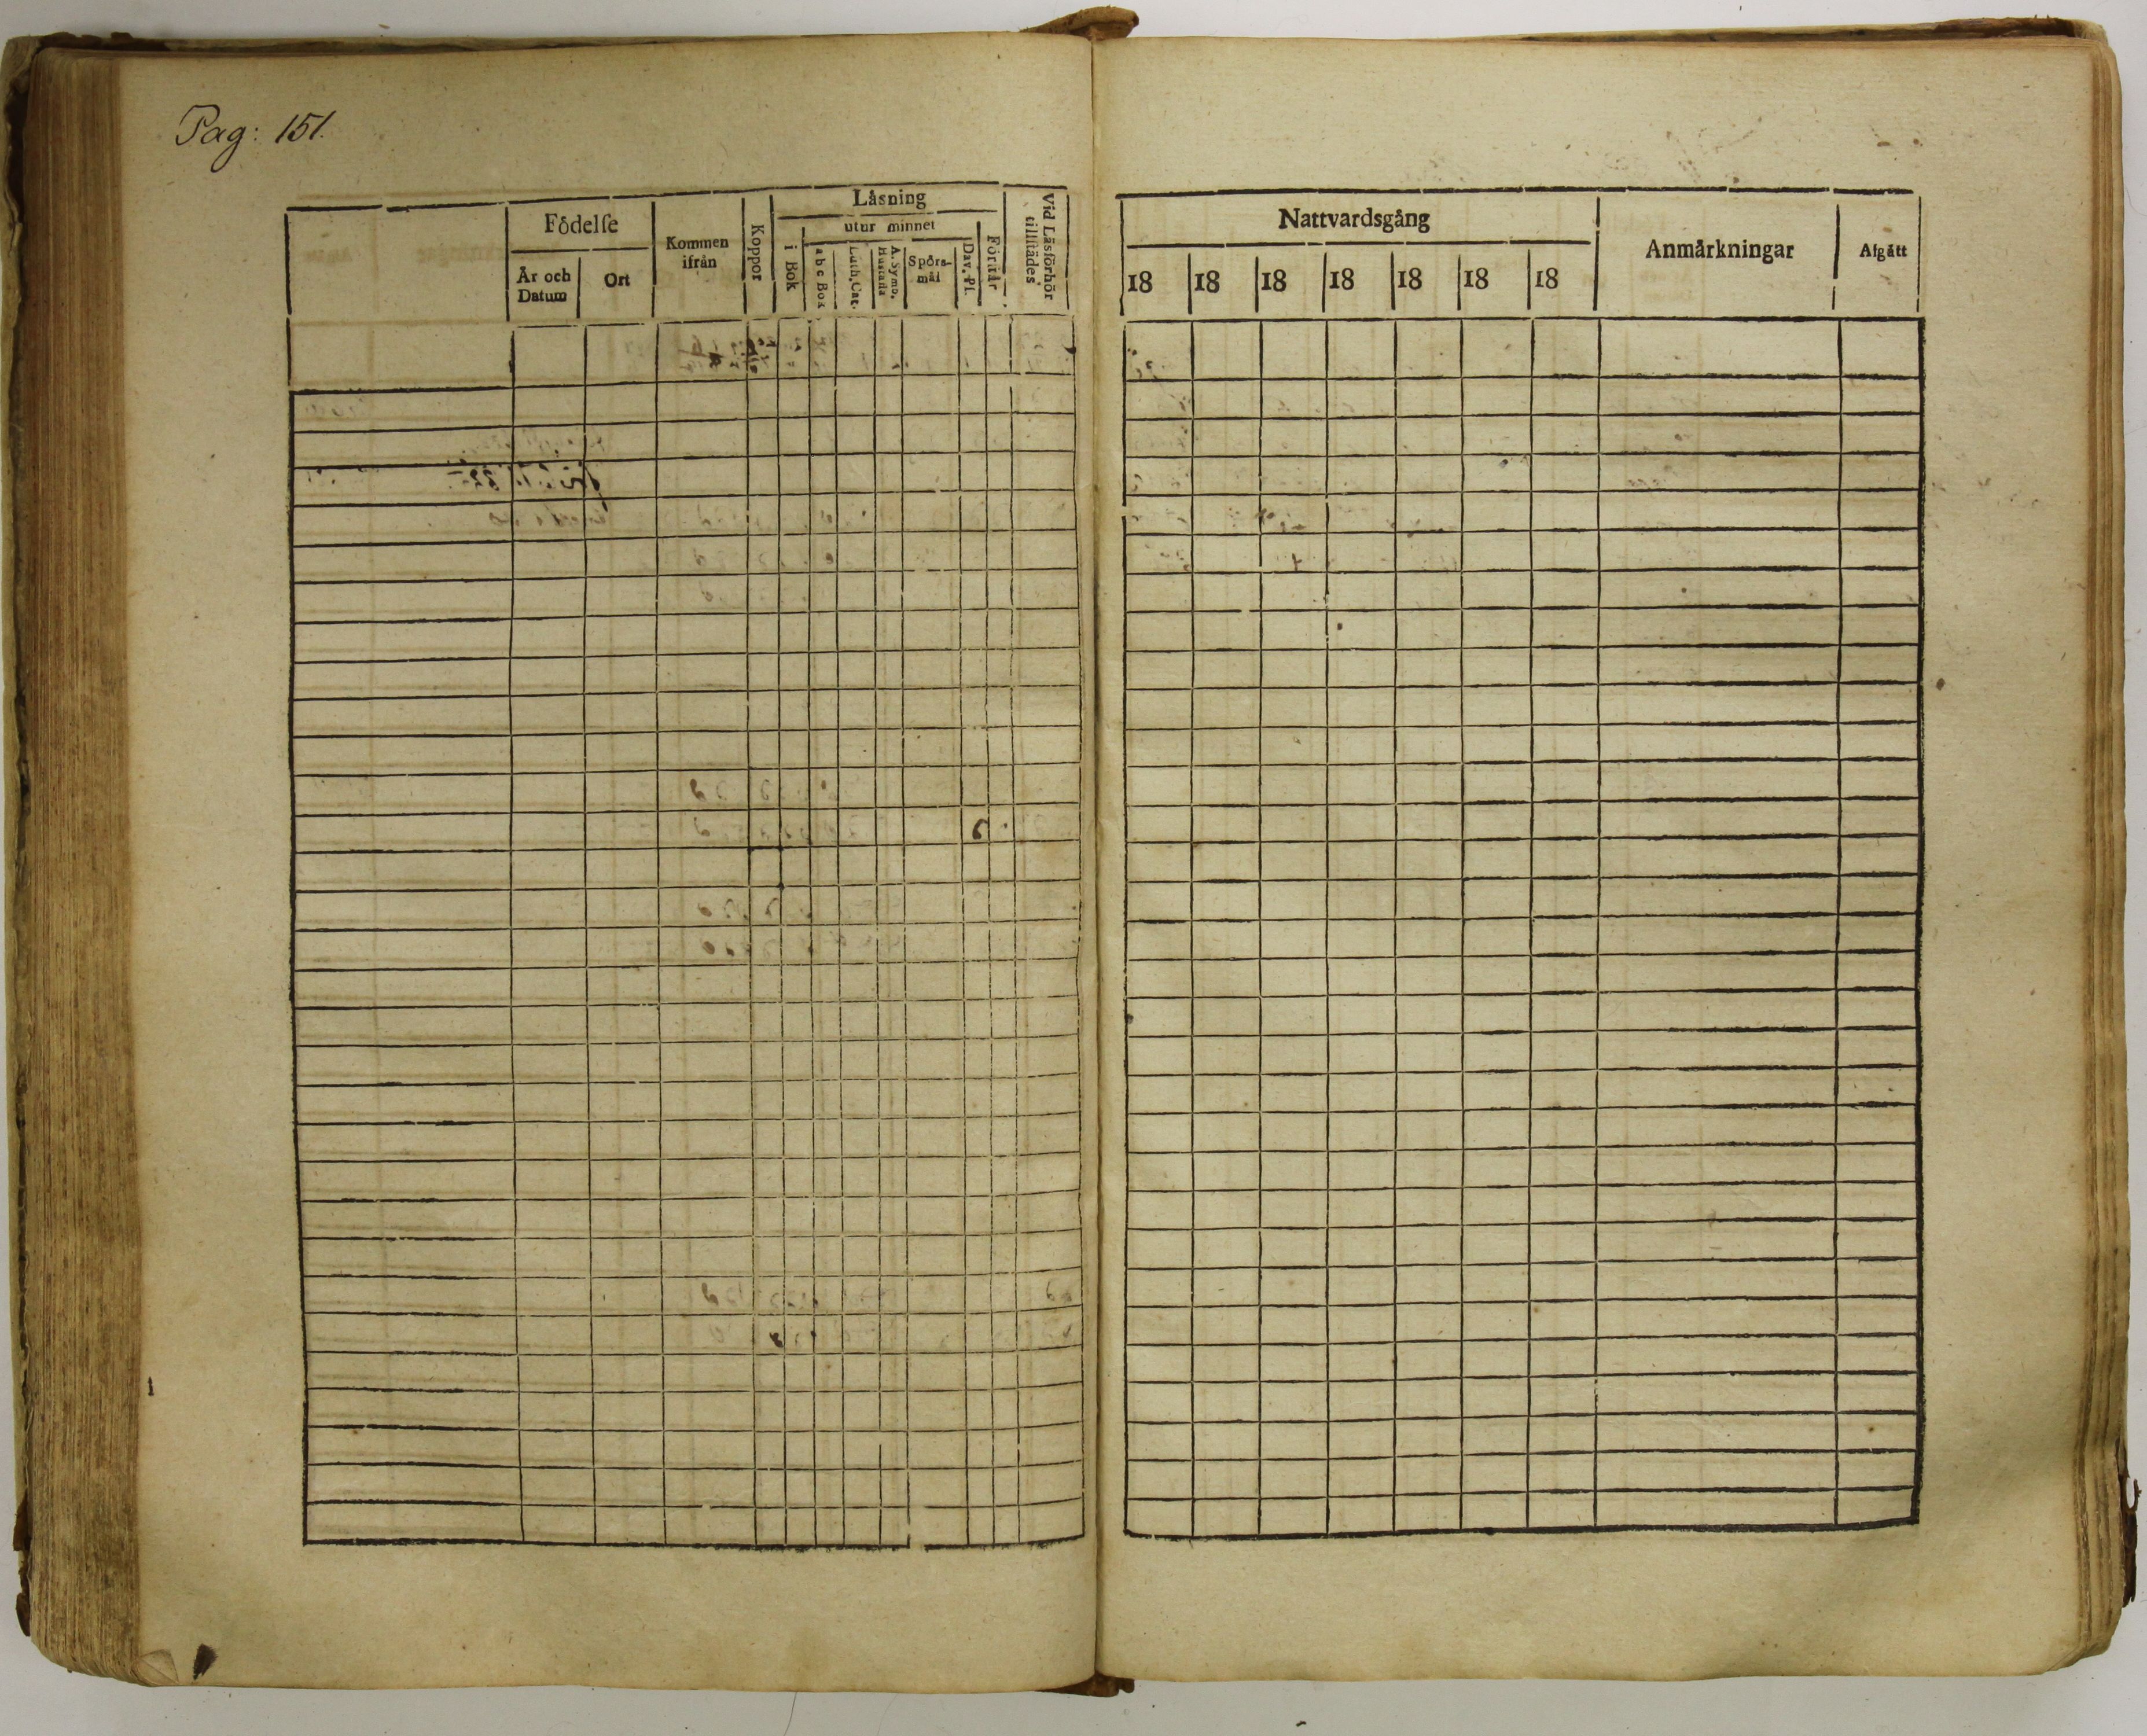 Pag: 151.
Låsning
Födelſe
Kommen ifrån
Koppor
utur minnet
Vid Läsförhör tillſtädes
År och Datum
Ort
i Bok
a b c Bok
Luth. Cat.
A. Symb. Hustafla
Spörs-mål
Dav. Pſ.
Förſtår
Nattvardsgång
Anmårkningar
Afgått
18 18 18 18 18 18 18